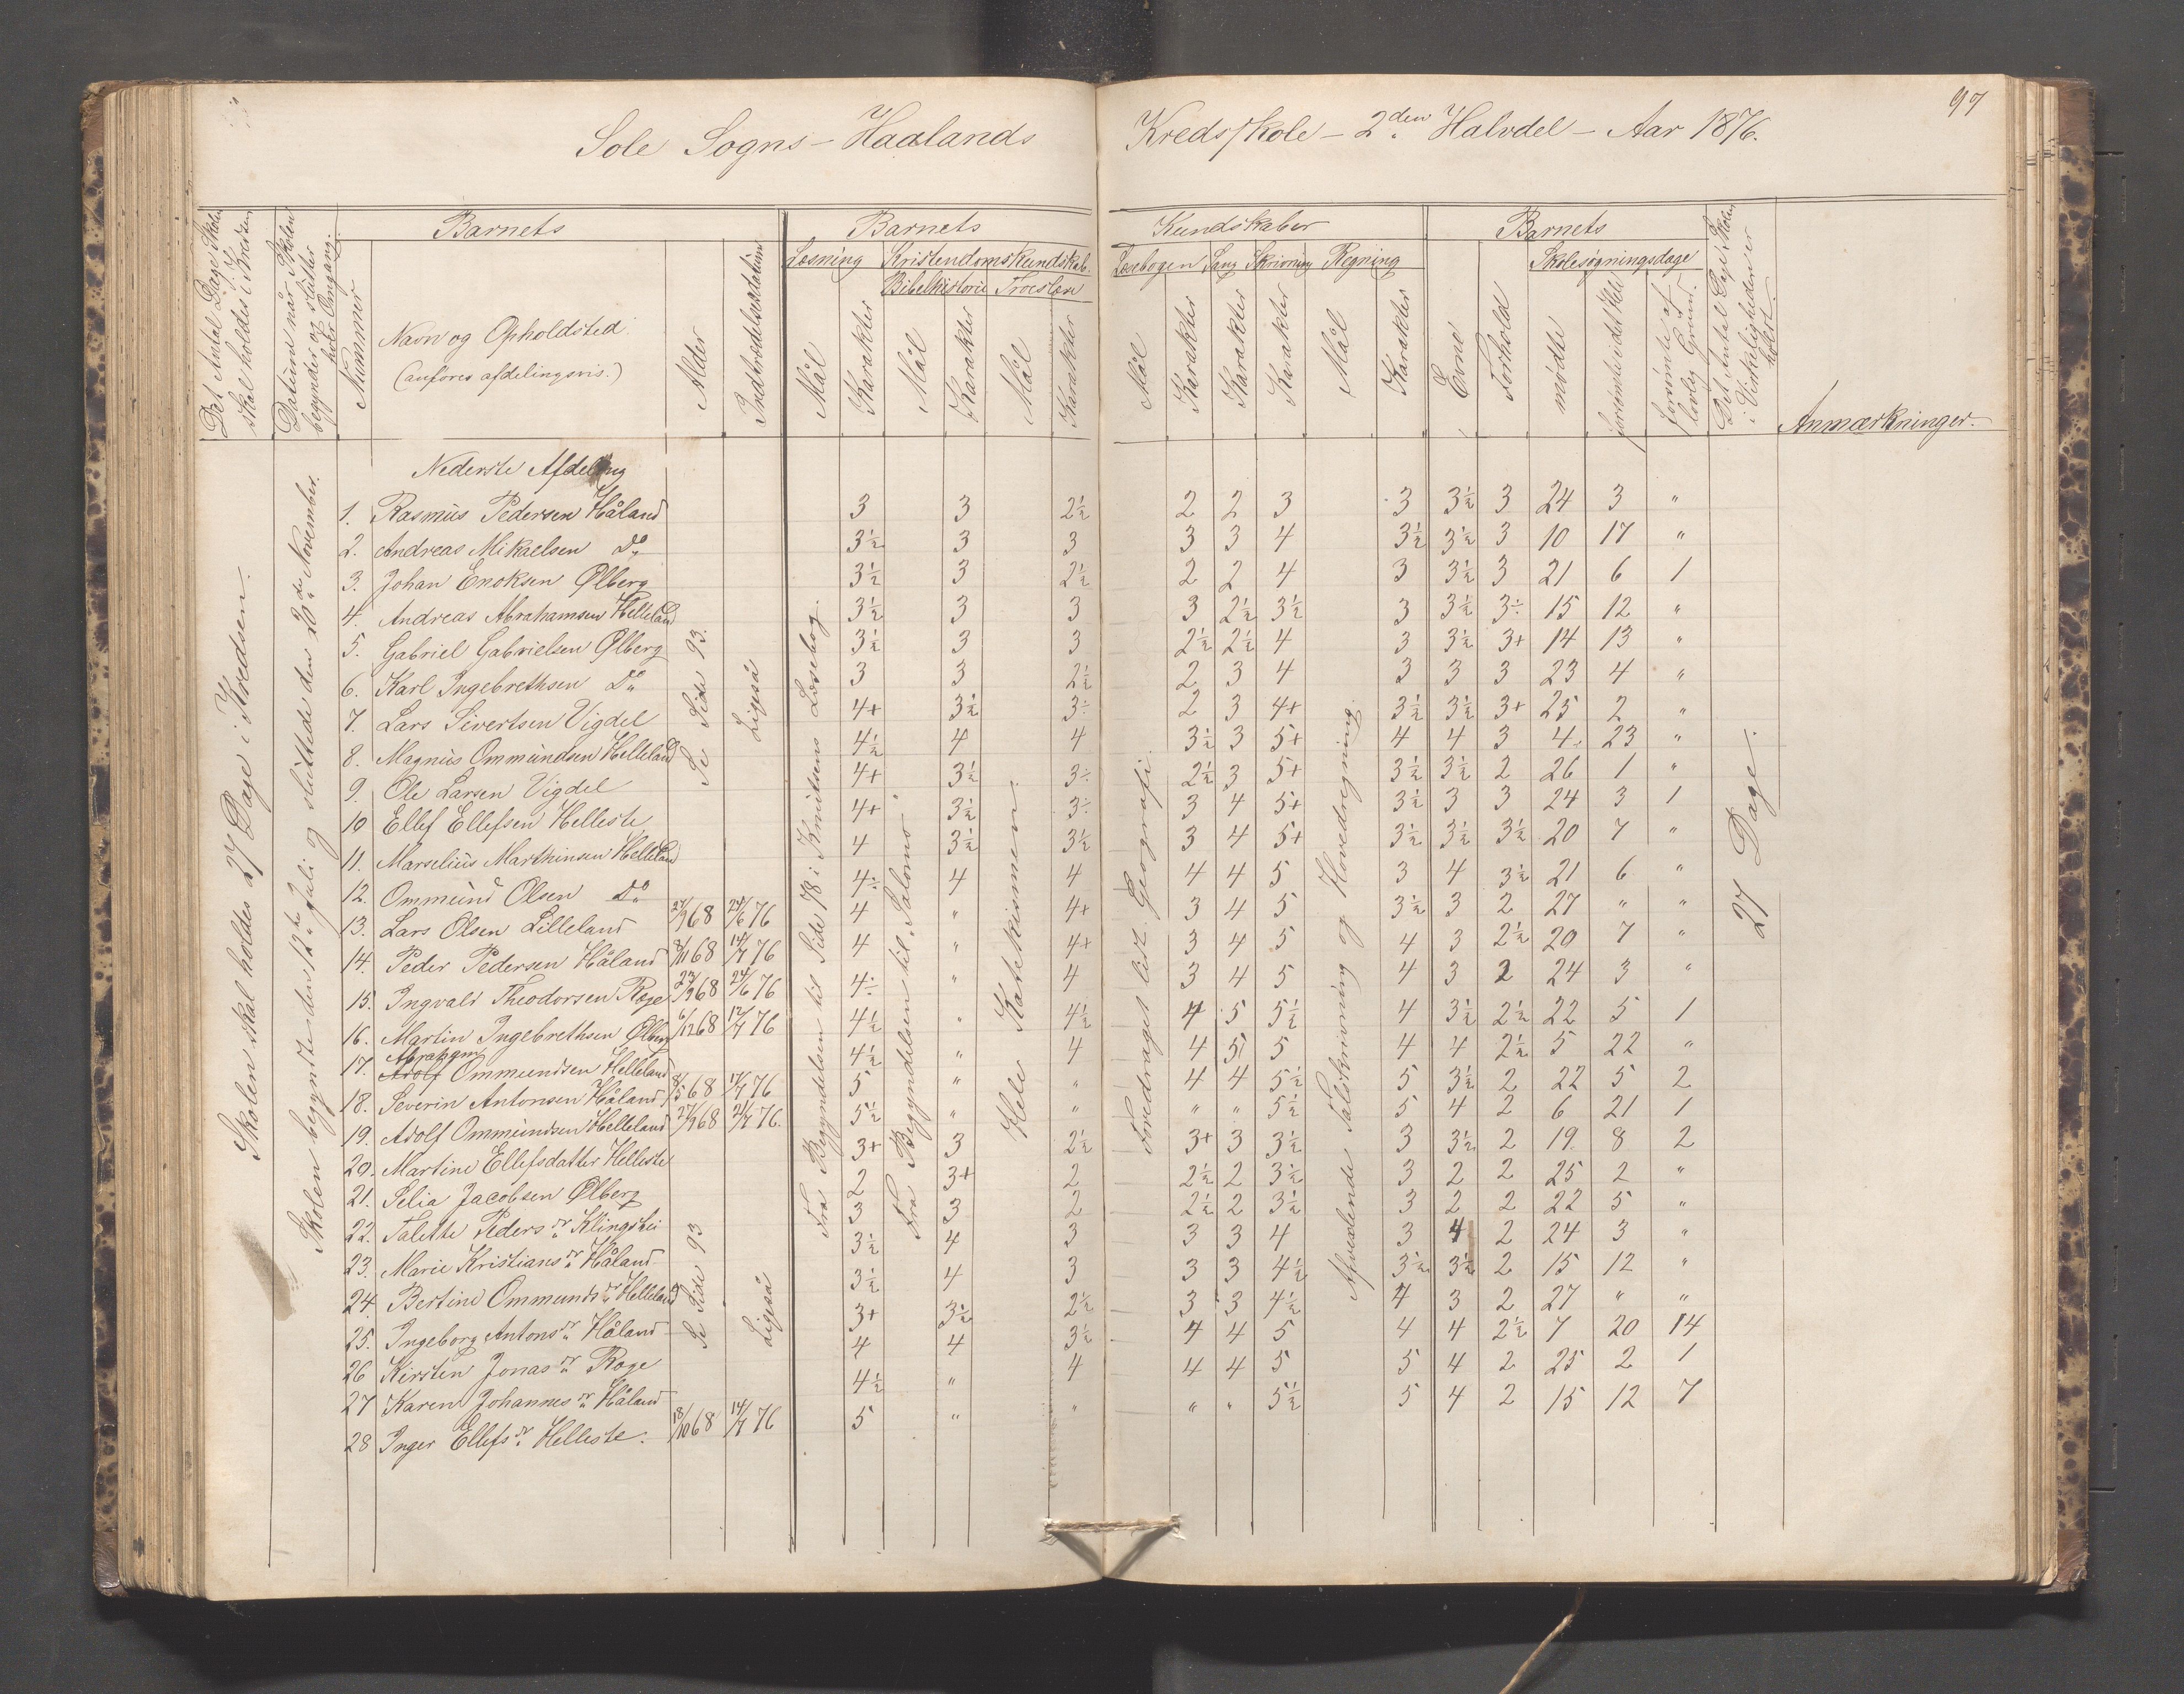 97
Sole Sogns - Haalands Kredsskole - 2den Halvdel - Aar 1876.
Det Antal Dage Skolen skal holdes i Kredsen
Datum når Skolen begynder og slutter hver Omgang.
Nummer
Barnets
Navn og Opholdsted.
(anføres afdelingsvis.)
Alder
Indtrædelsesdatum
Barnets Kundskaber
Læsning Kristendomskundskab.
Bibelhistorie Troeslære
Mål Karakter Mål Karakter Mål Karakter
Læsebogen Sang Skrivning Regning
Mål Karakter Karakter Karakter Mål Karakter
Barnets
Evne Forhold
Skolesøgningsdage
mødte forsømte i det Hele forsømte af lovlig Grund.
Det Antal Dage Skolen i Virkeligheden er holdt.
Anmærkninger.
Skolen skal holdes 27 Dage i Kredsen.
Skolen begyndte den 12te Juli og sluttede den 20de November.
Se Side 93.
Ligeså
Fra Begyndelsen til Side 78 i Knutsens Læsebog.
Fra Begyndelsen til "Salomo"
Hele Katekismen.
Foredraget lidt Geografi.
Afvexlende Talskrivning og Hovedregning.
27 Dage.
Nederste Afdeling
1. Rasmus Pedersen Håland 3 3 2½ 2 2 3 3 3½ 3 24 3 "
2. Andreas Mikaelsen Do 3½ 3 3 3 3 4 3½ 3½ 3 10 17 "
3. Johan Enoksen Ølberg 3½ 3 2½ 2 2 4 3 3½ 3 21 6 1
4. Andreas Abrahamsen Helleland 3½ 3 3 3 2½ 3½ 3 3½ 3÷ 15 12 "
5. Gabriel Gabrielsen Ølberg 3½ 3 3 2½ 2½ 4 3 3½ 3+ 14 13 "
6. Karl Ingebrethsen Do 3 3 2½ 2 3 4 3 3 3 23 4 "
7. Lars Sivertsen Vigdel 4+ 3½ 3÷ 2 3 4+ 3½ 3½ 3+ 25 2 "
8. Magnus Ommundsen Helleland 4½ 4 4 3½ 3 5+ 4 4 3 4 23 "
9. Ole Larsen Vigdel 4+ 3½ 3÷ 2½ 3 5+ 3½ 3½ 2 26 1 "
10 Ellef Ellefsen Helleste 4+ 3½ 3÷ 3 4 5+ 3½ 3 3 24 3 1
11. Marselius Marthinsen Helleland 4 3½ 3½ 3 4 5+ 3½ 3½ 3½ 20 7 "
12. Ommund Olsen Do 4÷ 4 4 4 4 5 3 4 3½ 21 6 "
13. Lars Olsen Lilleland 27/9 68 24/6 76 4 " 4+ 3 4 5 3½ 3 2 27 " "
14. Peder Pedersen Håland 8/11 68 14/7 76 4 " 4+ 3 4 5 4 3 2½ 20 7 "
15. Ingvald Theodorsen Røge 23/9 68 24/6 76 4÷ " 4 3 4 5 4 3 2 24 3 "
16. Martin Ingebrethsen Ølberg 6/12 68 12/7 76 4½ " 4½ 4 5 5½ 4 3½ 2½ 22 5 1
17. Abraham Adolf Ommundsen Helleland 4½ " 4 4 5 5 4 4 2½ 5 22 "
18. Severin Antonsen Håland 8/5 68 17/7 76 5 " " 4 4 5½ 5 3½ 2 22 5 2
19. Adolf Ommundsen Helleland 27/9 68 21/7 76. 5½ " " " " 5½ 5 4 2 6 21 1
20. Martine Ellefsdatter Helleste 3+ 3 2½ 3+ 3 3½ 3 3½ 2 19. 8 2
21. Selia Jacobsen Ølberg 2 3+ 2 2½ 2 3½ 3 2 2 25 2 "
22. Talette Pedersdr Klingshei 3 3 2 2½ 2 3½ 3 2 2 22 5 "
23. Marie Kristiansdr Håland 3½ 4 3 3 3 4 3 4 2 24 3 "
24. Bertine Ommundsdr Helleland 3½ 4 3 3 3 4½ 3½ 3½ 2 15 12 "
25. Ingeborg Antonsdr Håland 3+ 3½ 2½ 3 3 4½ 4 3 2 27 " "
26 Kirsten Jonasdr Røge 4 4 3½ 4 4 5 4 4 2½ 7 20 14
27 Karen Johannesdr Håland 4½ " 4 4 4 5 5 4 2 25 2 1
28 Inger Ellefsdr Helleste. 18/10 68 14/7 76 5 " " " " 5½ 5 4 2 15 12 7
Se Side 93
Ligeså